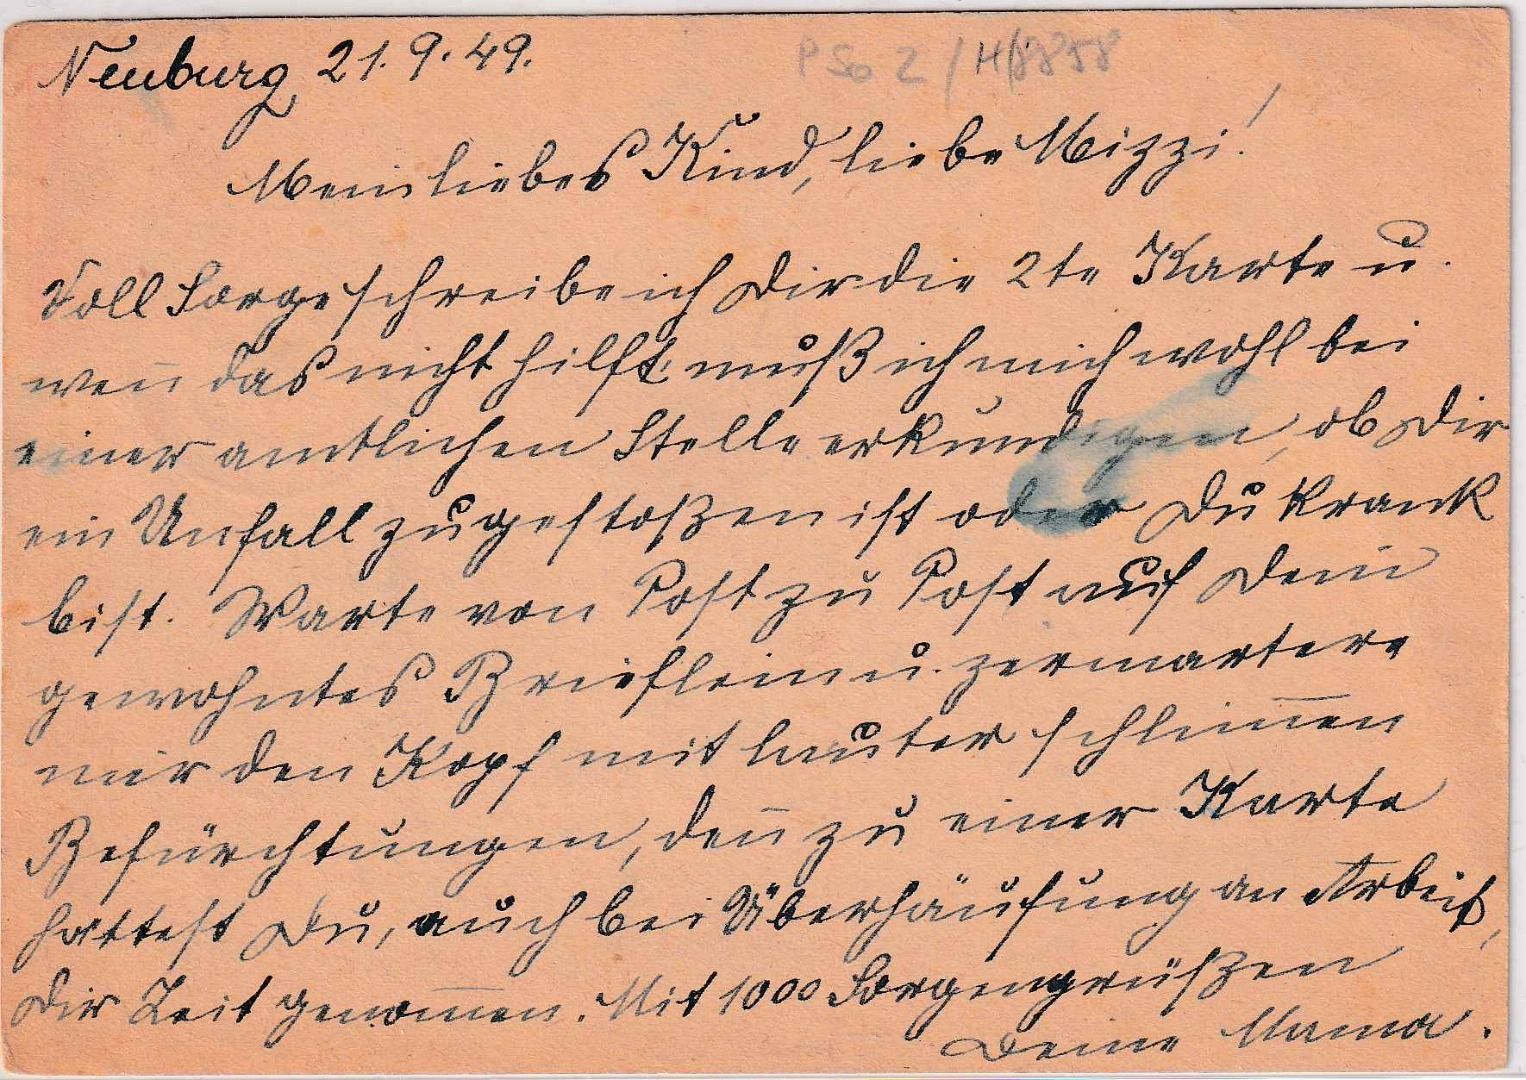 Neuburg 21.9.49.
P So 2 / H/
Mein liebes Kind, liebe Mizzi!
Voll Sorge schreibe ich Dir die 2te Karte u.
weñ das nicht hilft muß ich mich wohl bei
einer amtlichen Stelle erkundigen, ob Dir
ein Unfall zugestoßen ist oder Du krank
bist. Warte von Post zu Post auf Dein
gewohntes Brieflein u. zermartere
mir den Kopf mit lauter schlim̄en
Befürchtungen, deñ zu einer Karte
hattest Du, auch bei Überhäufung an Arbeit,
Dir Zeit genom̄en. Mit 1000 Sorgengrüßen
Deine Mama.